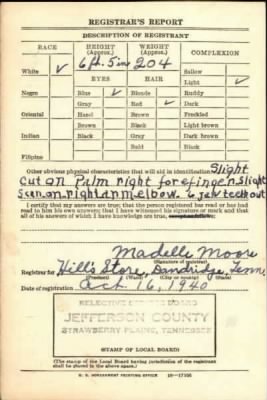 REGISTRAR'S REPORT
DESCRIPTION OF REGISTRANT
RACE HEIGHT (Approx.) WEIGHT (Approx.) COMPLEXION
6 ft. 5 in 204
White ✓ Sallow
EYES HAIR Light ✓
Negro Blue ✓ Blonde Ruddy
Gray Red ✓ Dark
Oriental Hazel Brown Freckled
Brown Black Light brown
Indian Black Gray Dark brown
Bald Black
Filipino
Other obvious physical characteristics that will aid in identification Slight
cut on Palm right forefinger Slight
Scar on right arm elbow 6 jaw teeth out
I certify that my answers are true; that the person registered has read or has had
read to him his own answers; that I have witnessed his signature or mark and that
all of his answers of which I have knowledge are true,
Madelle Moore
(Signature of registrar)
Registrar for Hill's Store, Dandridge, Tenn
(Precinct) (Ward) (City or county) (State)
Date of registration Oct 16, 1940
SELECTIVE SERVICE BOARD
JEFFERSON COUNTY
STRAWBERRY PLAINS, TENNESSEE
STAMP OF LOCAL BOARD
(The stamp of the Local Board having jurisdiction of the registrant
shall be placed in the above space.)
U. S. GOVERNMENT PRINTING OFFICE